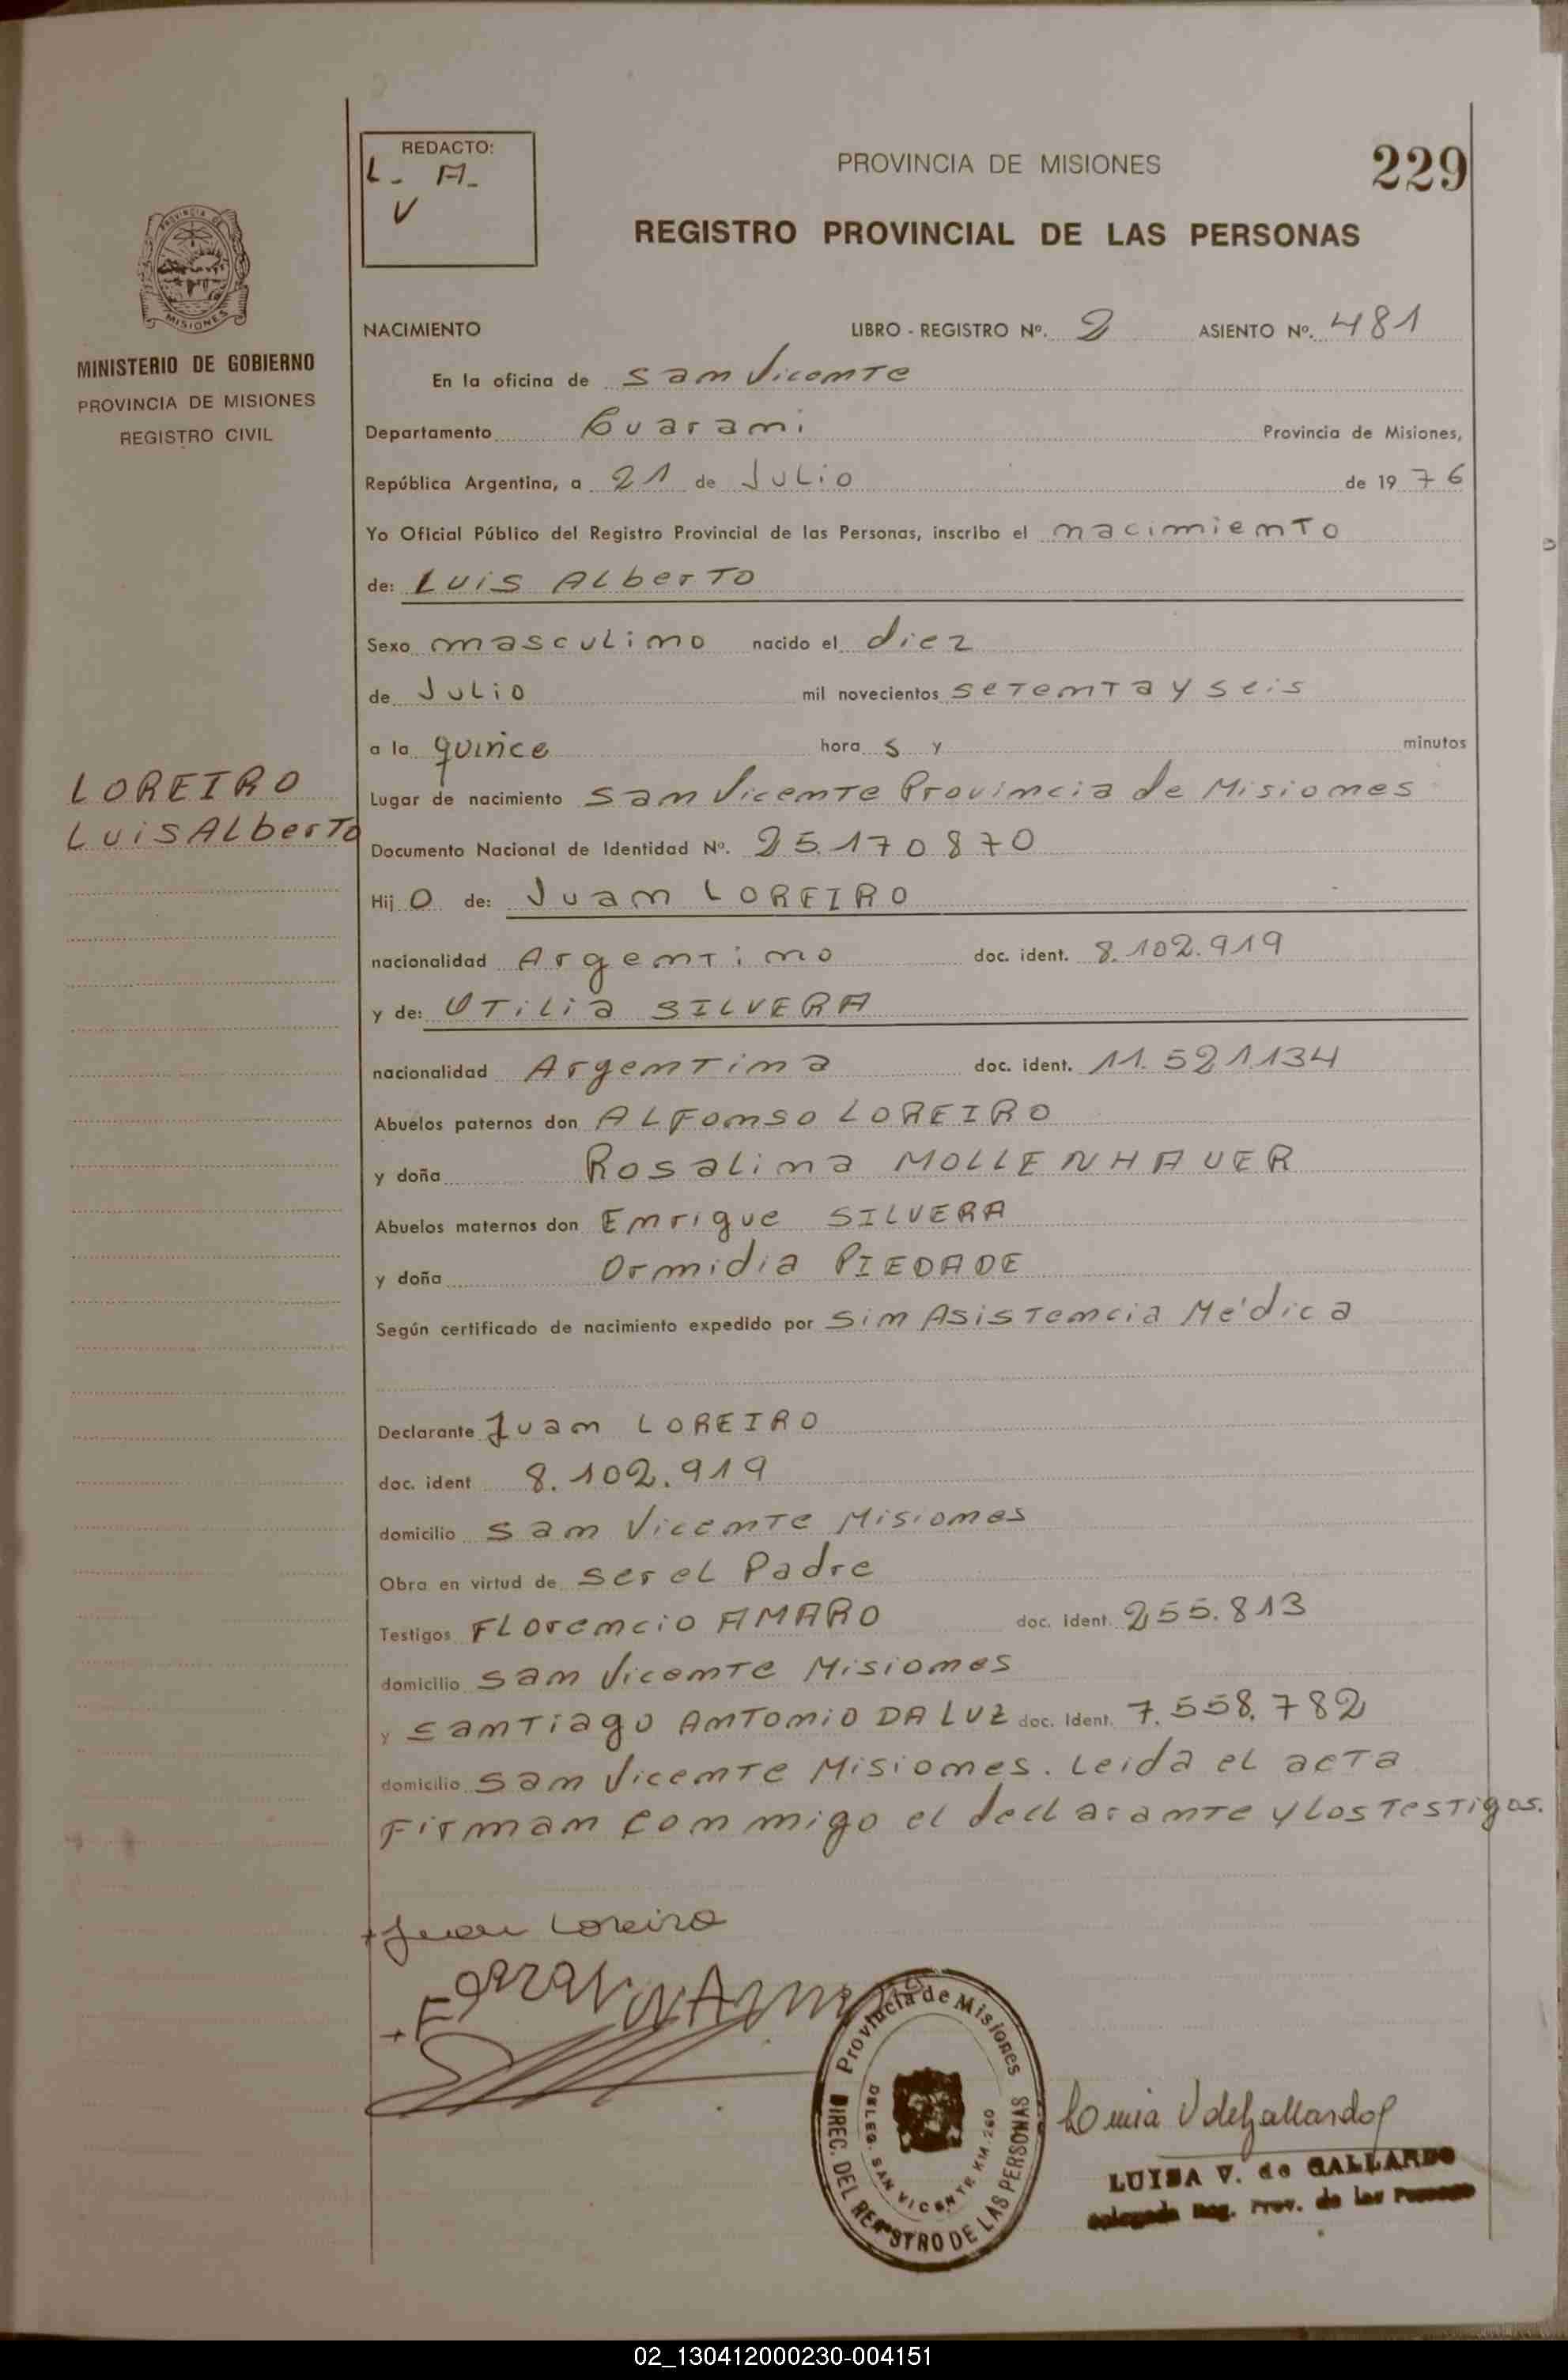 REDACTO:
L. A.
V
PROVINCIA DE MISIONES
229
REGISTRO PROVINCIAL DE LAS PERSONAS
PROVINCIA DE
MISIONES
MINISTERIO DE GOBIERNO
PROVINCIA DE MISIONES
REGISTRO CIVIL
NACIMIENTO LIBRO - REGISTRO Nº. 2 ASIENTO Nº. 481
En la oficina de San Vicente
Departamento Guarani Provincia de Misiones,
República Argentina, a 21 de Julio de 1976
Yo Oficial Público del Registro Provincial de las Personas, inscribo el nacimiento
de: Luis Alberto
Sexo masculino nacido el diez
de Julio mil novecientos setenta y seis
a la quince hora s y minutos
LOREIRO
Luis Alberto
Lugar de nacimiento San Vicente Provincia de Misiones
Documento Nacional de Identidad Nº. 25.170870
Hij o de: Juan LOREIRO
nacionalidad Argentino doc. ident. 8.102.919
y de: Utilia SILVERA
nacionalidad Argentina doc. ident. 11.521.134
Abuelos paternos don Alfonso LOREIRO
y doña Rosalina MOLLENHAUER
Abuelos maternos don Enrique SILVERA
y doña Ormidia PIEDADE
Según certificado de nacimiento expedido por Sin Asistencia Médica
Declarante Juan LOREIRO
doc. ident 8.102.919
domicilio San Vicente Misiones
Obra en virtud de ser el Padre
Testigos Florencio AMARO doc. ident. 255.813
domicilio San Vicente Misiones
y Santiago Antonio DA LUZ doc. Ident. 7.558.782
domicilio San Vicente Misiones. Leida el acta
Firman conmigo el declarante y los testigos.
Juan Loreiro
Provincia de Misiones
DIREC. DEL REGISTRO DE LAS PERSONAS
DELEG. SAN VICENTE KM. 260
Luisa V de Gallardo
LUISA V. de GALLARDO
Delegada Reg. Prov. de las Personas
02_130412000230-004151